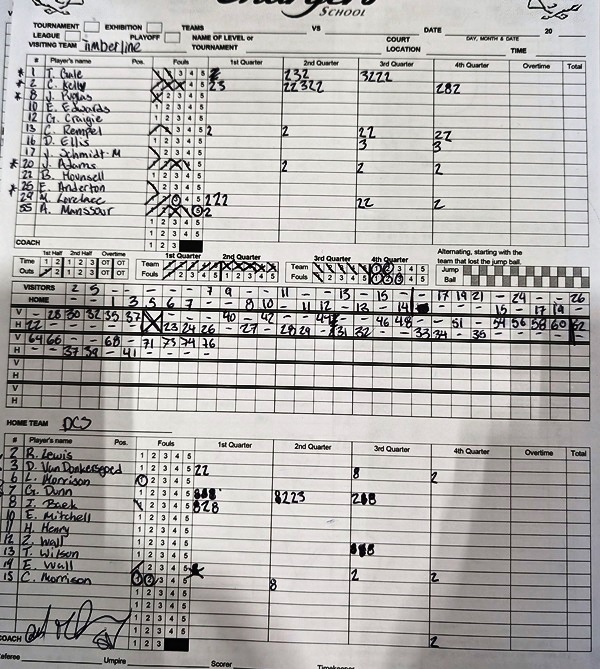 Chargers
SCHOOL
TOURNAMENT EXHIBITION TEAMS VS DATE 20
LEAGUE PLAYOFF NAME OF LEVEL or COURT DAY, MONTH & DATE
VISITING TEAM Timberline TOURNAMENT LOCATION TIME
# Player's name Pos. Fouls 1st Quarter 2nd Quarter 3rd Quarter 4th Quarter Overtime Total
1 T. Gale 3 4 5 232 3222
2 C. Kelly 4 5 23 22322 282
8 J. 2 3 4 5
10 E. Edwards 1 2 3 4 5
12 G. Craigie 1 2 3 4 5
13 C. Rempel 3 4 5 2 2 22 22
16 D. Ellis 2 3 4 5 3 3
17 J. Schmidt-M 2 3 4 5
20 J. Adams 5 2 2 2
22 B. Hounsell 1 2 3 4 5
25 E. Anderton 2 3 4 5
29 M. Lovelace 4 5 222 22 2
55 A. Manssour 5 2
1 2 3 4 5
1 2 3 4 5
COACH 1 2 3
1st Half 2nd Half Overtime 1st Quarter 2nd Quarter 3rd Quarter 4th Quarter Alternating, starting with the
Time 1 2 1 2 3 OT OT Team Team team that lost the jump ball.
Outs 1 2 1 2 3 OT OT Fouls Fouls Jump
Ball
VISITORS 2 5 - - - - - 7 9 - - 11 - - 13 - 15 - - 17 19 21 - 24 - - 26
HOME - - 1 3 5 6 7 - - 8 10 - 11 12 - 13 - 14 - - - - 15 - 17 19 -
V - 28 30 32 35 37 - - - 40 - 42 - - 44 - - 46 48 - - 51 - 54 56 58 60 62
H 22 - - - - - 23 24 26 - 27 - 28 29 - 31 32 - - 33 34 - 35 - - - -
V 64 66 - - 68 - 71 73 74 76
H - - 37 39 - 41 - - - -
V
H
V
H
HOME TEAM DCS
# Player's name Pos. Fouls 1st Quarter 2nd Quarter 3rd Quarter 4th Quarter Overtime Total
2 R. Lewis 1 2 3 4 5
3 D. VanDonkersgoed 1 2 3 4 5 22 8 2
6 L. Morrison 1 2 3 4 5
G. Dunn 1 2 3 4 5 8223
8 Z. Baek 2 3 4 5 828
10 E. Mitchell 1 2 3 4 5
11 H. Henry 1 2 3 4 5
12 Z. Wall 1 2 3 4 5
13 T. Wilson 1 2 3 4 5
14 E. Wall 1 2 3 4
15 C. Morrison 1 2 3 4 5 8 2 2
1 2 3 4 5
1 2 3 4 5
1 2 3 4 5
1 2 3 4 5
COACH 1 2 3 2
Referee Umpire Scorer Timekeeper